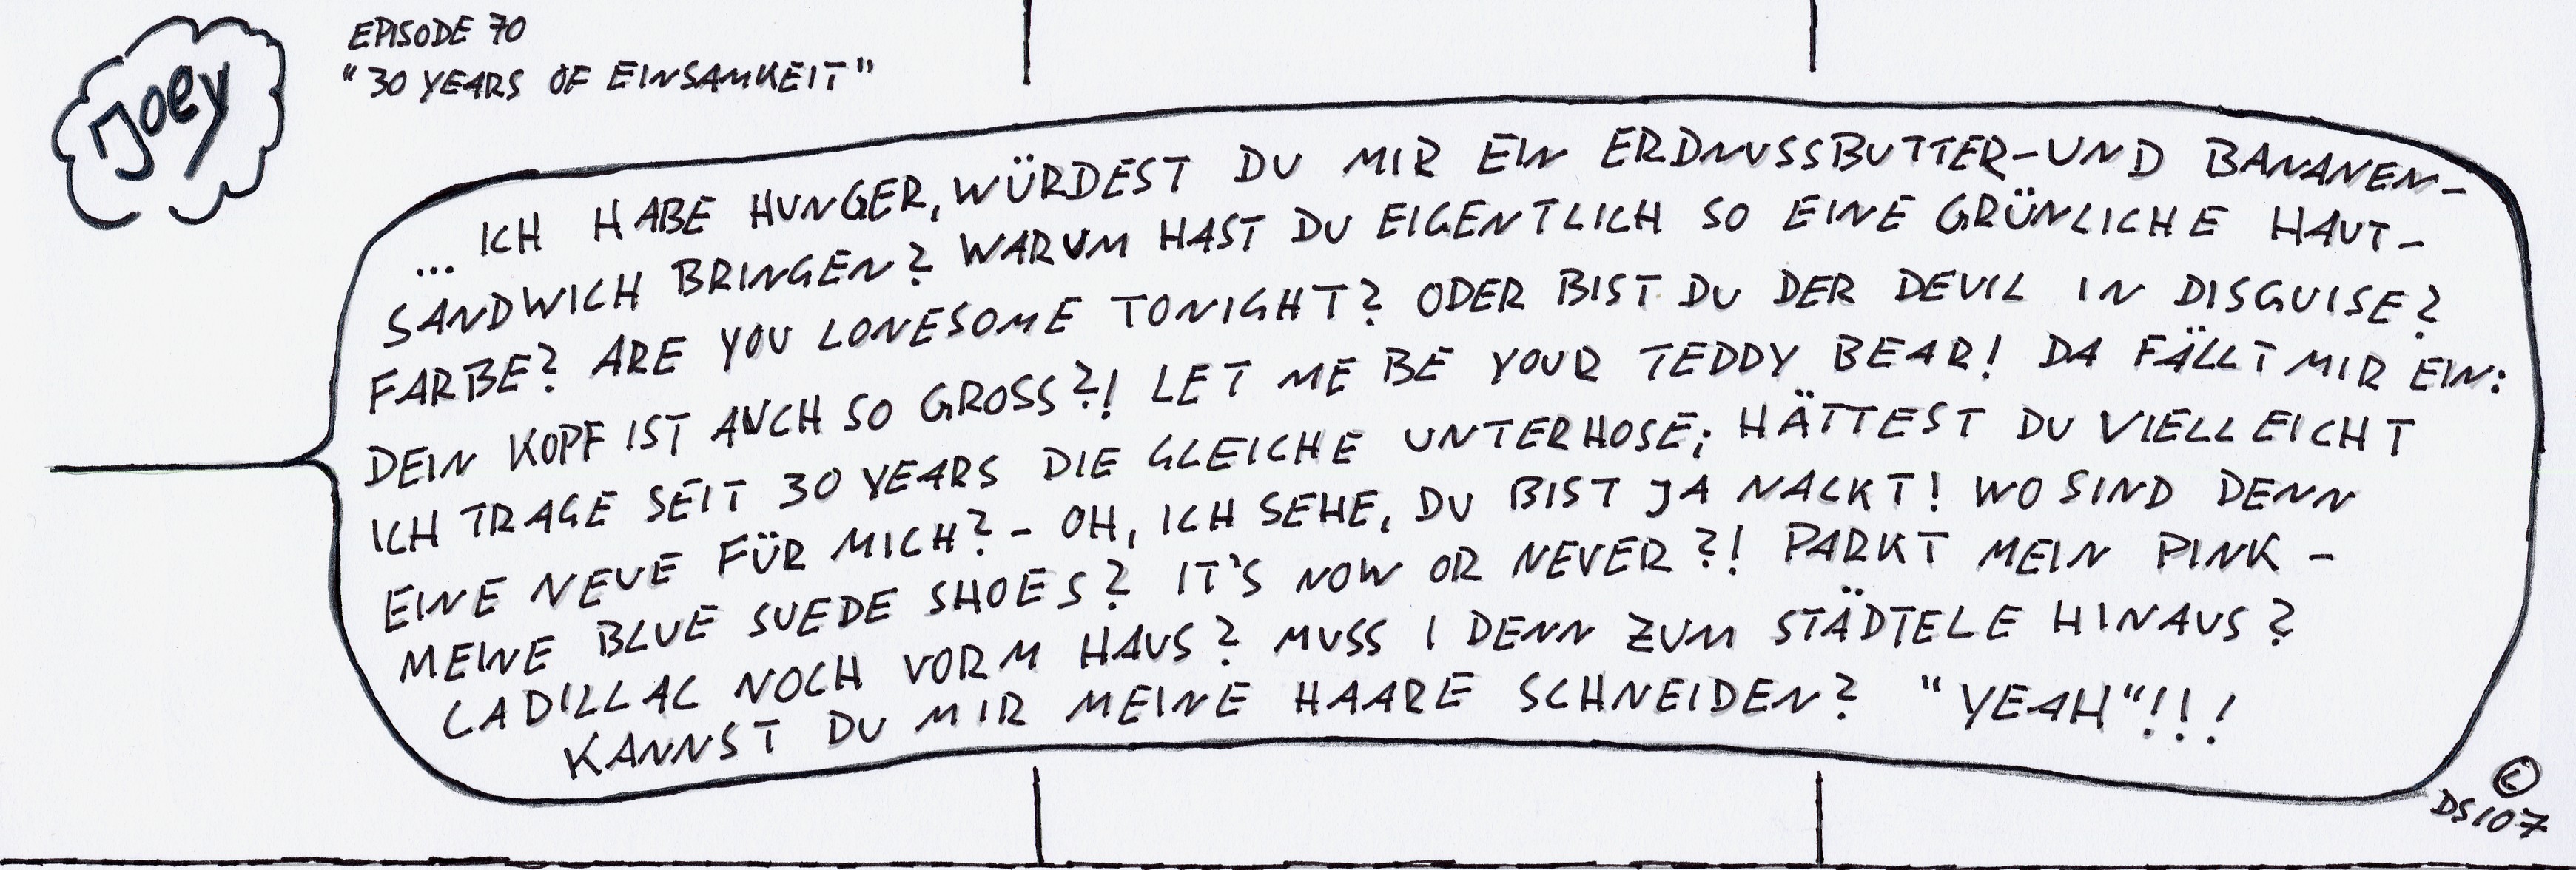 Joey
EPISODE 70
"30 YEARS OF EINSAMKEIT"
... ICH HABE HUNGER, WÜRDEST DU MIR EIN ERDNUSSBUTTER-UND BANANEN-
SANDWICH BRINGEN? WARUM HAST DU EIGENTLICH SO EINE GRÜNLICHE HAUT-
FARBE? ARE YOU LONESOME TONIGHT? ODER BIST DU DER DEVIL IN DISGUISE?
DEIN KOPF IST AUCH SO GROSS?! LET ME BE YOUR TEDDY BEAR! DA FÄLLT MIR EIN:
ICH TRAGE SEIT 30 YEARS DIE GLEICHE UNTERHOSE; HÄTTEST DU VIELLEICHT
EINE NEUE FÜR MICH? - OH, ICH SEHE, DU BIST JA NACKT! WO SIND DENN
MEINE BLUE SUEDE SHOES? IT'S NOW OR NEVER?! PARKT MEIN PINK -
CADILLAC NOCH VORM HAUS? MUSS I DENN ZUM STÄDTELE HINAUS?
KANNST DU MIR MEINE HAARE SCHNEIDEN? "YEAH"!!!
©
DS107